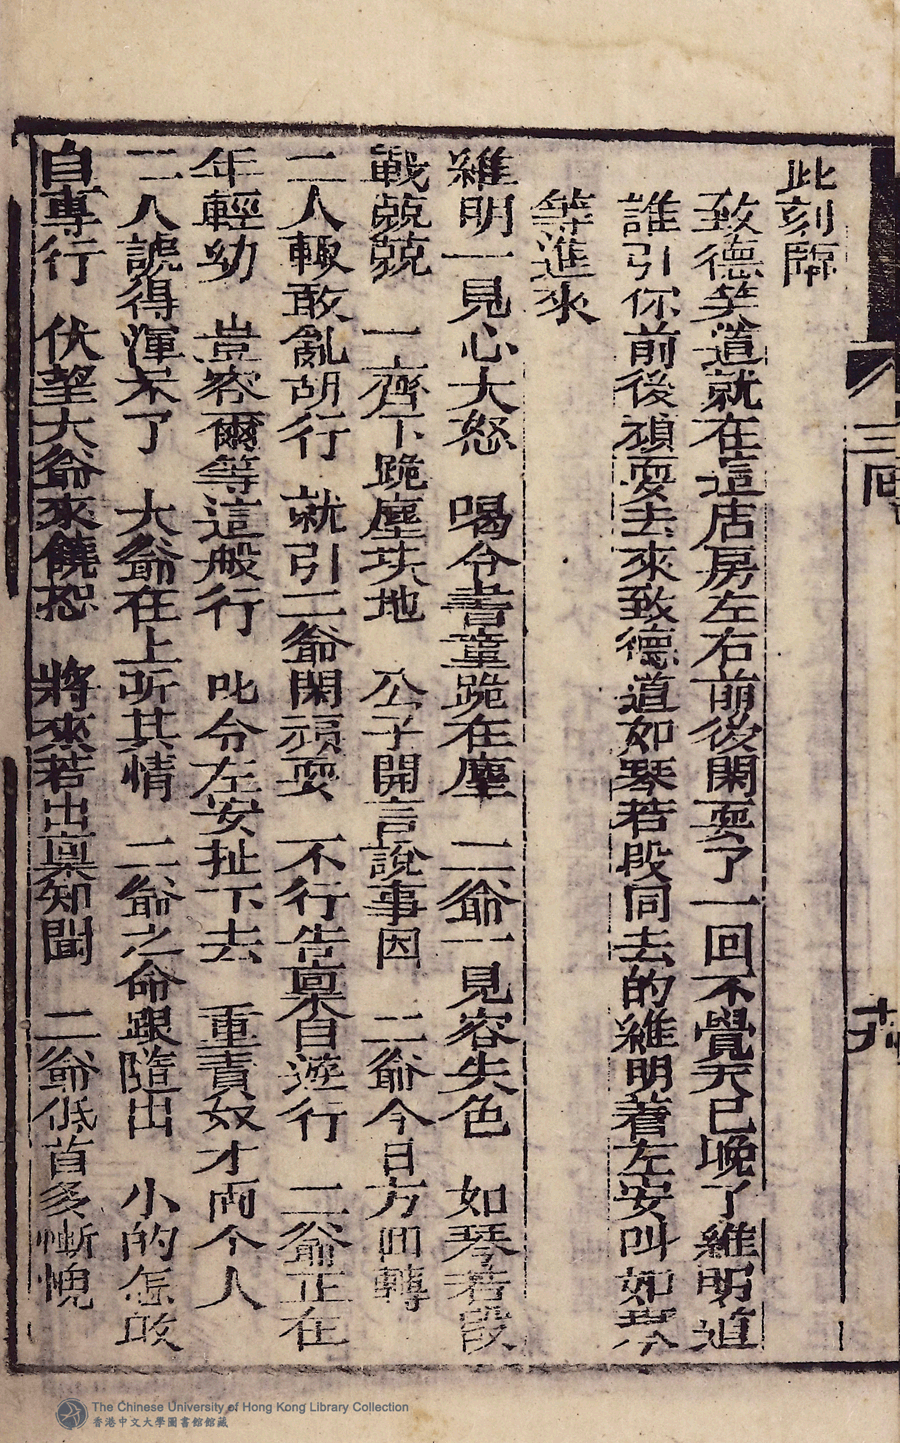 此刻
致德笑道就在這店房左右前後閑耍了一回不覺天已晚了維明道
誰引你前後頑耍去來致德道如琴若段同去的維明着左安叫如琴
等進來
維明一見心大怒　喝令書童跪在塵　二爺一見容失色　如琴若段
戰兢兢　一齊下跪塵埃地　公子開言說事因　二爺今日方回轉
二人輒敢亂胡行　就引二爺閑頑耍　不行告稟自遊行　二爺正在
年輕幼　豈容爾等這般行　叱令左安扯下去　重責奴才両个人
二人諕得渾不了　大爺在上听其情　二爺之命跟隨出　小的怎敢
自專行　伏望大爺來饒恕　將來若出稟知聞　二爺低首多慚愧
三回
The Chinese University of Hong Kong Library Collection
香港中文大學圖書館館藏